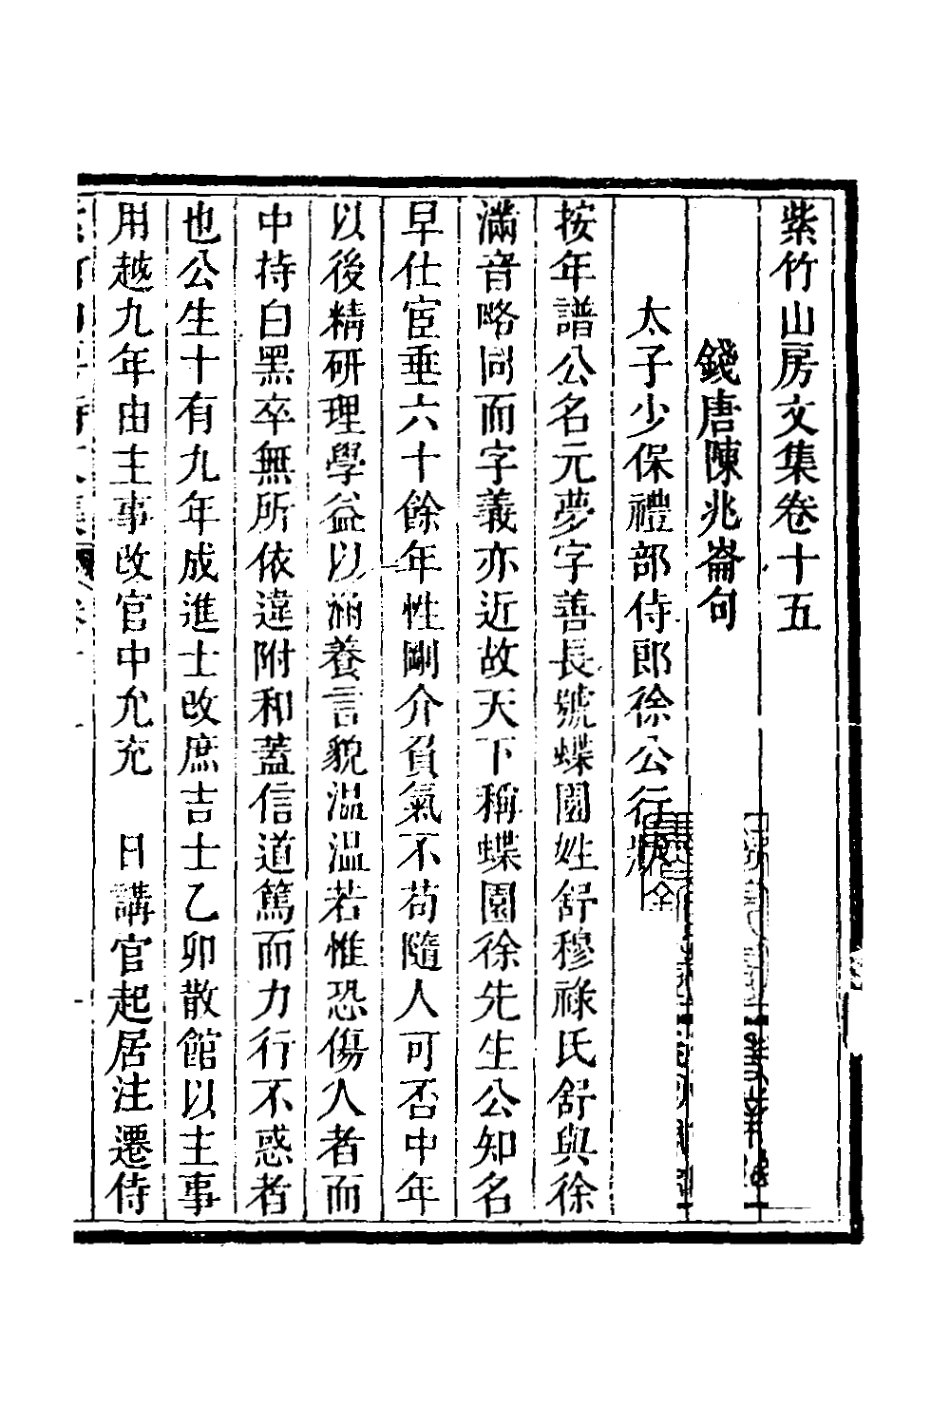 紫竹山房文集卷十五
錢唐陳兆崙句
太子少保禮部侍郎徐公行狀
按年譜公名元夢字善長號蝶園姓舒穆祿氏舒與徐
滿音略同而字義亦近故天下稱蝶園徐先生公知名
早仕宦垂六十餘年性剛介負氣不苟隨人可否中年
以後精研理學益以涵養言貌温温若惟恐傷人者而
中持白黑卒無所依違附和蓋信道篤而力行不惑者
也公生十有九年成進士改庶吉士乙卯散館以主事
用越九年由主事改官中允充 日講官起居注遷侍